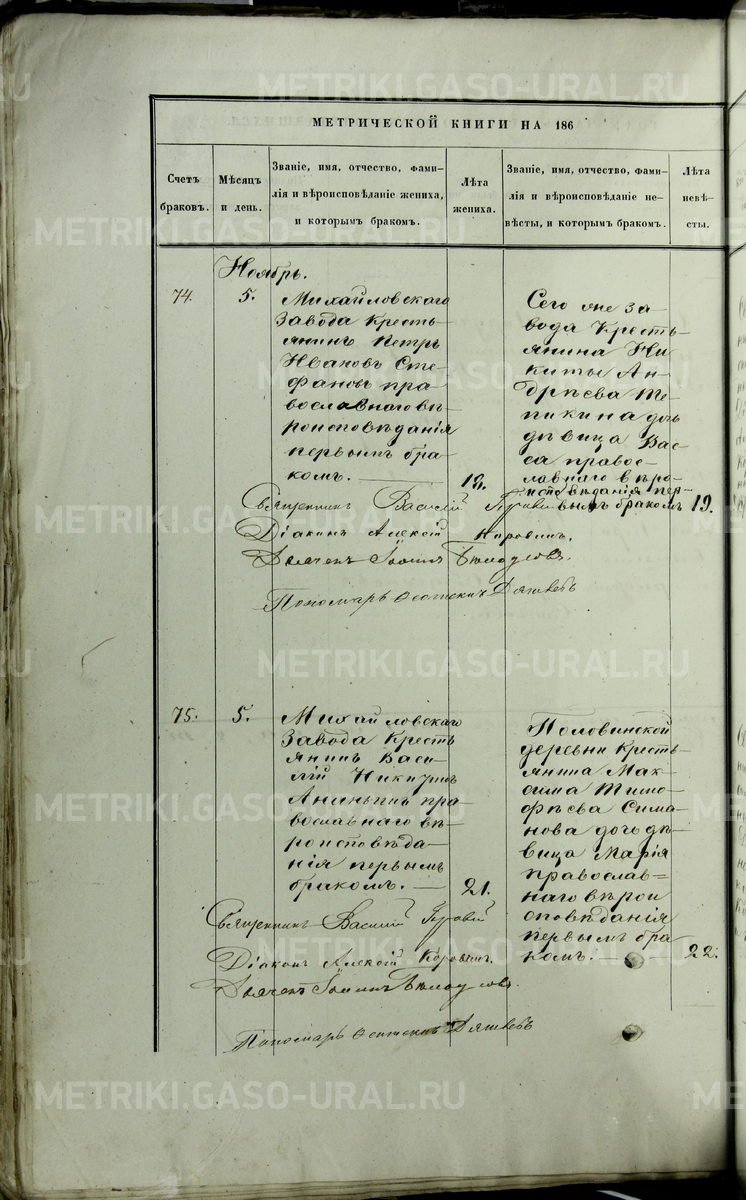 МЕТРИЧЕСКОЙ КНИГИ НА 186
Счетъ браковъ.
Мѣсяцъ и день.
Званіе, имя, отчество, фами-
лія и вѣроисповѣданіе жениха,
и которымъ бракомъ.
Лѣта жениха.
Званіе, имя, отчество, фами-
лія и вѣроисповѣданіе не-
вѣсты, и которымъ бракомъ.
Лѣта невѣ-
сты.
Ноябрь.
74.
5.
Михайловскаго
завода Кресть-
янинъ Петръ
Ивановъ Сте-
фановъ пра-
вославнаго вѣ-
роисповѣданія
первымъ бра-
комъ.
19.
Сего же за-
вода Кресть-
янина Ни-
киты Ан-
дрѣева
дочь
дѣвица Вас-
са право-
славнаго вѣро-
исповѣданія пер-
вымъ бракомъ
19.
Священникъ Василій
Діаконъ Алексій Коровинъ.
Дьячекъ Іоаннъ
Пономарь
75.
5.
Михайловскаго
завода Кресть
янинъ Васи-
лій Никитинъ
Ананьинъ пра-
вославнаго вѣ-
роисповѣда-
нія первымъ
бракомъ.
21.
Половинской
деревни Кресть-
янина Мак-
сима Тимо-
фѣева Сима-
нова дочь дѣ-
вица Марія
православ=
наго вѣрои
сповѣданія
первымъ бра-
комъ.
22.
Священникъ Василій
Діаконъ Алексій Коровинъ.
Дьячекъ Іоаннъ
Пономарь
METRIKI.GASO-URAL.RU